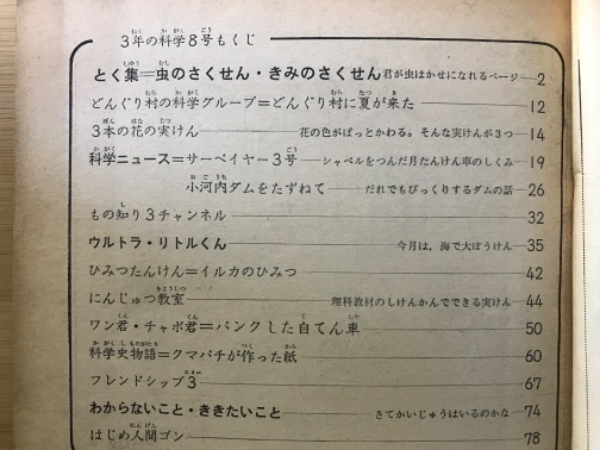 3年の科学8号もくじ
とく集=虫のさくせん・きみのさくせん 君が虫はかせになれるページ 2
どんぐり村の科学グループ=どんぐり村に夏が来た 12
3本の花の実けん 花の色がぱっとかわる。そんな実けんが3つ 14
科学ニュース=サーベイヤー3号 シャベルをつんだ月たんけん車のしくみ 19
小河内ダムをたずねて だれでもびっくりするダムの話 26
もの知り3チャンネル 32
ウルトラ・リトルくん 今月は,海で大ぼうけん 35
ひみつたんけん=イルカのひみつ 42
にんじゅつ教室 理科教材のしけんかんでできる実けん 44
ワン君・チャボ君=パンクした自てん車 50
科学史物語=クマバチが作った紙 60
フレンドシップ3 67
わからないこと・ききたいこと さてかいじゅうはいるのかな 74
はじめ人間ゴン 78